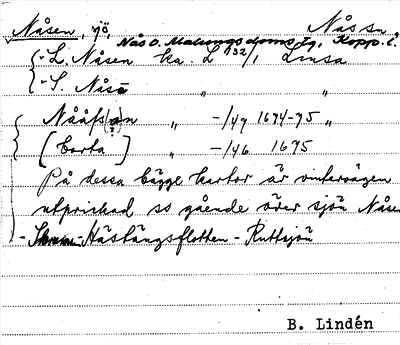 Nåsen, sjö, Nås sn,
Nås o. Malungs doms. tg, Kopp. l.
L. Nåsen ka. L 132/1 Lmsa
S. Nåsen " "
Nååfs(a)n " -/49 1674-75 "
[borta] " -/46 1675
På dessa bägge kartor är vintervägen
utprickad ss gående över sjön Nåsen
- Hästängsflotten - Ruttsjön
B. Lindén